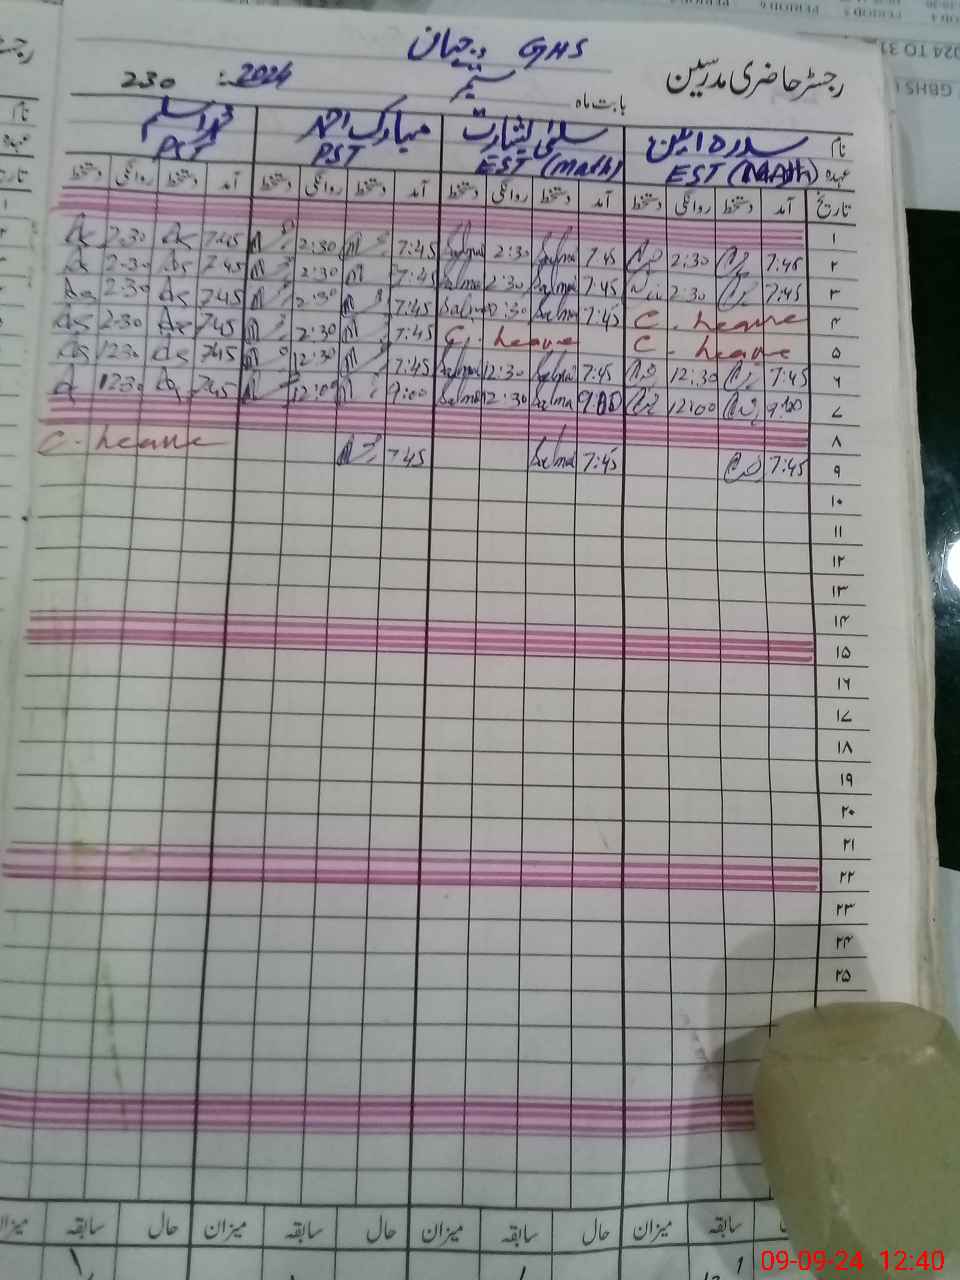 GHS
رجسٹر حاضری مدرسین
بابت ماہ ستمبر 2024 230
نام سدرہ امین سلمیٰ بشارت مبارک احمد محمد اسلم
عہدہ EST (MATH) EST (math) PST PST
تاریخ آمد دستخط روانگی دستخط آمد دستخط روانگی دستخط آمد دستخط روانگی دستخط آمد دستخط روانگی دستخط
۱
۲ 7:45 2:30 7:45 Salma 2:30 Salma 7:45 2:30 7:45 2:30
۳ 7:45 2:30 7:45 Salma 2:30 Salma 7:45 2:30 7:45 2:30
۴ C. Leave 7:45 Salma 2:30 Salma 7:45 2:30 7:45 2:30
۵ C. Leave C. Leave 7:45 2:30 7:45 2:30
۶ 7:45 12:30 7:45 Salma 12:30 Salma 7:45 12:30 7:45 12:30
۷ 9:00 12:00 9:00 Salma 12:30 Salma 9:00 12:00 7:45 12:30
۸
۹ 7:45 7:45 Salma 7:45 C. Leave
۱۰
۱۱
۱۲
۱۳
۱۴
۱۵
۱۶
۱۷
۱۸
۱۹
۲۰
۲۱
۲۲
۲۳
۲۴
۲۵
سابقہ میزان حال سابقہ میزان حال سابقہ میزان حال سابقہ میزان
09-09-24 12:40